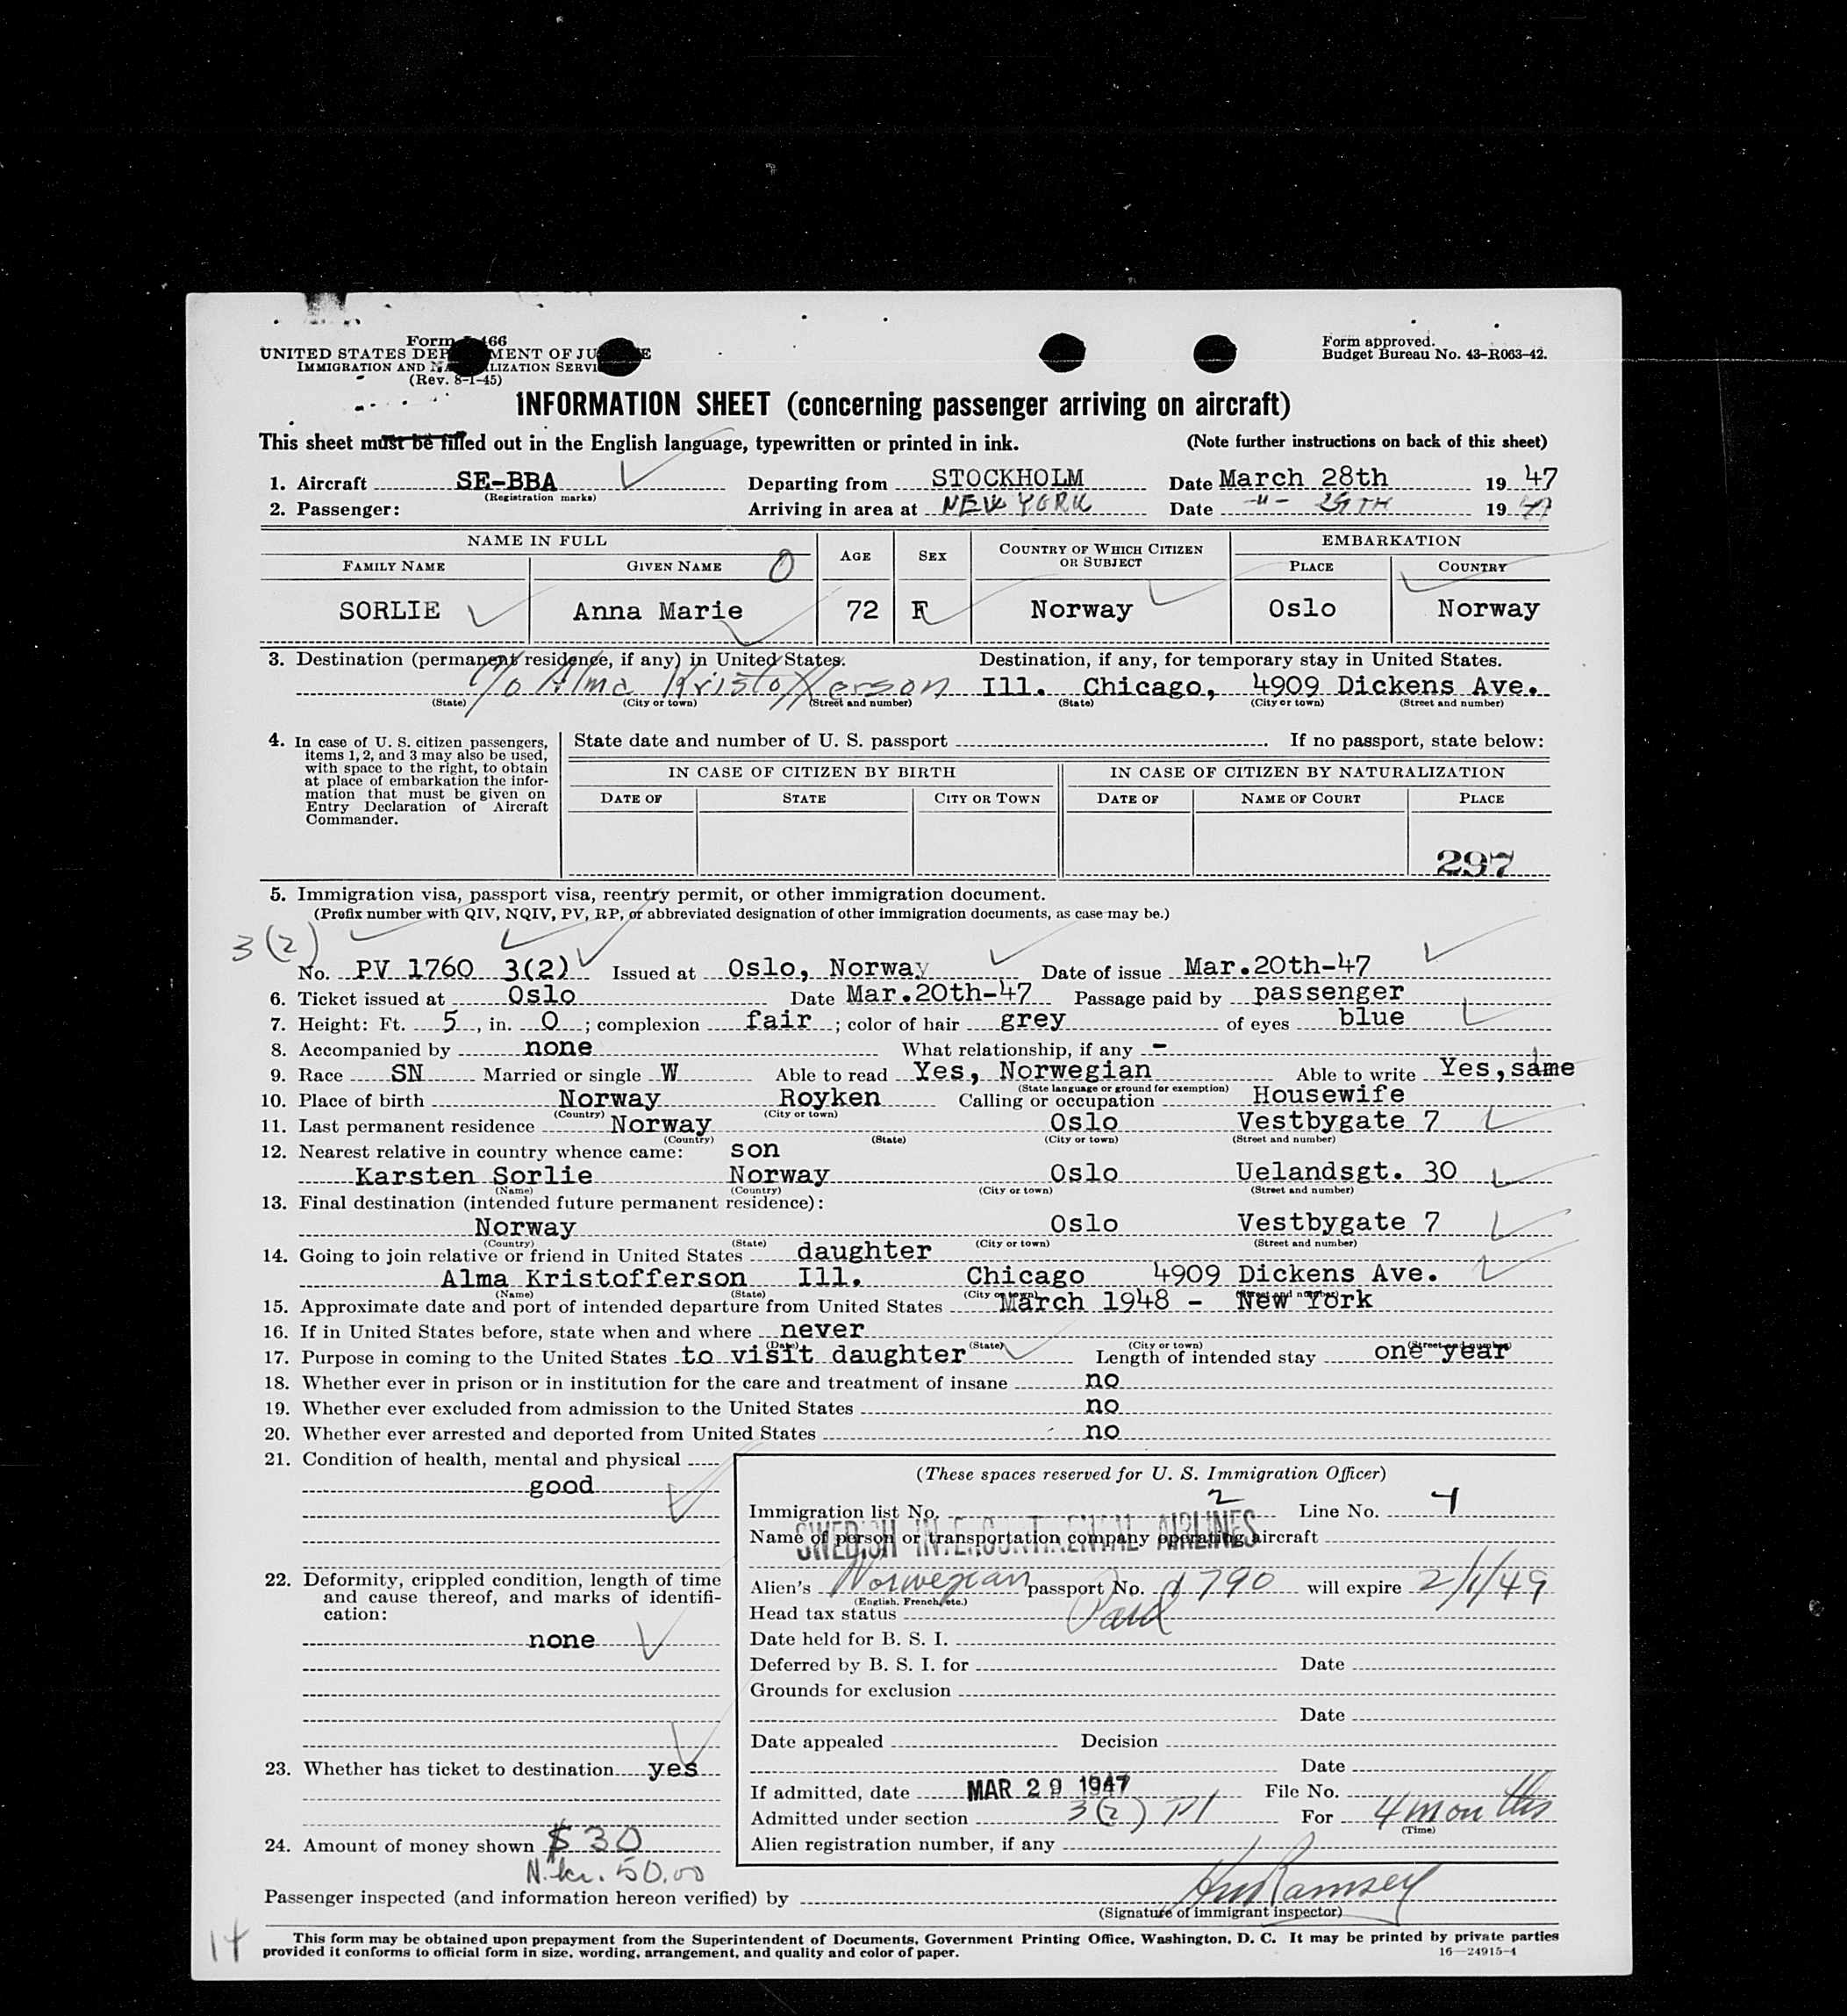 Form 466
UNITED STATES DEP MENT OF JU E
IMMIGRATION AND NA LIZATION SERVI
(Rev. 8-1-45)
Form approved.
Budget Bureau No. 43-R063-42.
INFORMATION SHEET (concerning passenger arriving on aircraft)
This sheet must be filled out in the English language, typewritten or printed in ink. (Note further instructions on back of this sheet)
1. Aircraft SE-BBA Departing from STOCKHOLM Date March 28th 19 47
(Registration marks)
2. Passenger: Arriving in area at NEW YORK Date -"- 29TH 19 47
NAME IN FULL AGE SEX COUNTRY OF WHICH CITIZEN OR SUBJECT EMBARKATION
FAMILY NAME GIVEN NAME 0 PLACE COUNTRY
SORLIE Anna Marie 72 F Norway Oslo Norway
3. Destination (permanent residence, if any) in United States. Destination, if any, for temporary stay in United States.
c/o Alma Kristofferson Ill. Chicago, 4909 Dickens Ave.
(State) (City or town) (Street and number) (State) (City or town) (Street and number)
4. In case of U. S. citizen passengers, items 1, 2, and 3 may also be used, with space to the right, to obtain at place of embarkation the information that must be given on Entry Declaration of Aircraft Commander.
State date and number of U. S. passport If no passport, state below:
IN CASE OF CITIZEN BY BIRTH IN CASE OF CITIZEN BY NATURALIZATION
DATE OF STATE CITY OR TOWN DATE OF NAME OF COURT PLACE
297
5. Immigration visa, passport visa, reentry permit, or other immigration document.
(Prefix number with QIV, NQIV, PV, RP, or abbreviated designation of other immigration documents, as case may be.)
3(2)
No. PV 1760 3(2) Issued at Oslo, Norway Date of issue Mar.20th-47
6. Ticket issued at Oslo Date Mar.20th-47 Passage paid by passenger
7. Height: Ft. 5, in. 0; complexion fair; color of hair grey of eyes blue
8. Accompanied by none What relationship, if any -
9. Race SN Married or single W Able to read Yes, Norwegian Able to write Yes, same
(State language or ground for exemption)
10. Place of birth Norway Royken Calling or occupation Housewife
(Country) (City or town)
11. Last permanent residence Norway Oslo Vestbygate 7
(Country) (State) (City or town) (Street and number)
12. Nearest relative in country whence came: son
Karsten Sorlie Norway Oslo Uelandsgt. 30
(Name) (Country) (City or town) (Street and number)
13. Final destination (intended future permanent residence):
Norway Oslo Vestbygate 7
(Country) (State) (City or town) (Street and number)
14. Going to join relative or friend in United States daughter
Alma Kristofferson Ill. Chicago 4909 Dickens Ave.
(Name) (State) (City or town) (Street and number)
15. Approximate date and port of intended departure from United States March 1948 - New York
16. If in United States before, state when and where never
(Date) (State) (City or town) (Street and number)
17. Purpose in coming to the United States to visit daughter Length of intended stay one year
18. Whether ever in prison or in institution for the care and treatment of insane no
19. Whether ever excluded from admission to the United States no
20. Whether ever arrested and deported from United States no
21. Condition of health, mental and physical
good
22. Deformity, crippled condition, length of time and cause thereof, and marks of identification:
none
23. Whether has ticket to destination yes
24. Amount of money shown $30
N.kr. 50.00
(These spaces reserved for U. S. Immigration Officer)
Immigration list No. 2 Line No. 4
Name of person or transportation company operating aircraft
SWEDISH INTERCONTINENTAL AIRLINES
Alien's Norwegian passport No. 1790 will expire 2/1/49
(English, French, etc.)
Head tax status Paid
Date held for B. S. I.
Deferred by B. S. I. for Date
Grounds for exclusion
Date
Date appealed Decision
Date
If admitted, date MAR 29 1947 File No.
Admitted under section 3(2) P1 For 4 months
(Time)
Alien registration number, if any
Passenger inspected (and information hereon verified) by Ramsey
(Signature of immigrant inspector)
14
This form may be obtained upon prepayment from the Superintendent of Documents, Government Printing Office, Washington, D. C. It may be printed by private parties
provided it conforms to official form in size, wording, arrangement, and quality and color of paper. 16—24915-1